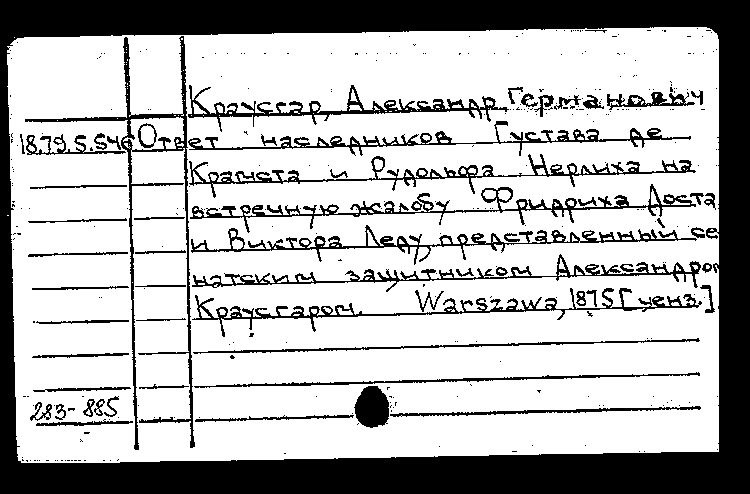 Краусгар, Александр Германович
18.79.5.546 Ответ наследников Густава де
Крагиста и Рудольфа Нерлиха на
встречную жалобу Фридриха Доста
и Виктора Леду, представленный се
натским защитником Александром
Краусгаром. Warszawa, 1875 [ценз.]
283-885